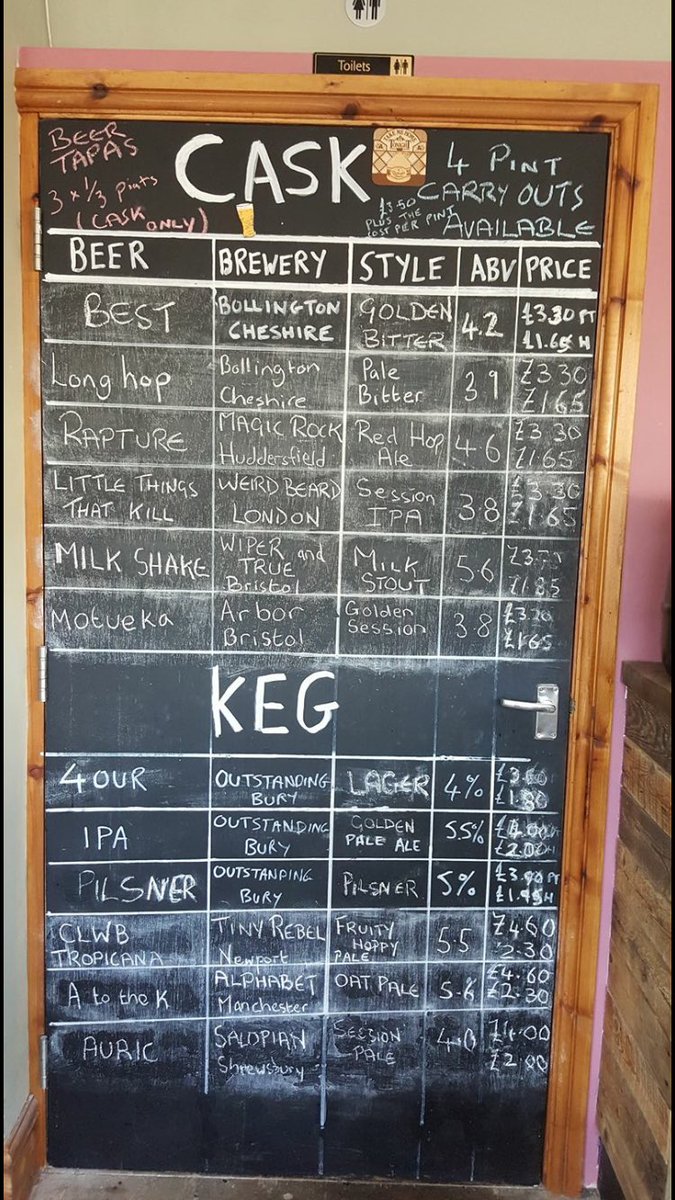 Toilets
BEER
TAPAS
3 x 1/3 Pints
(CASK ONLY)
CASK
TAKE ME HOME
TONIGHT
4 PINT
CARRY OUTS
AVAILABLE
£3.50
PLUS THE
COST PER PINT
BEER BREWERY STYLE ABV PRICE
BEST BOLLINGTON CHESHIRE GOLDEN BITTER 4.2 £3.30 PT £1.65 H
Long hop Bollington Cheshire Pale Bitter 39 £3.30 £1.65
RAPTURE MAGIC ROCK Huddersfield Red Hop Ale 4.6 £3.30 £1.65
LITTLE THINGS THAT KILL WEIRD BEARD LONDON Session IPA 3.8 £3.30 £1.65
MILK SHAKE WIPER and TRUE Bristol MILK STOUT 5.6 £1.85
MOTUEKA Arbor Bristol Golden Session 3.8 £1.65
KEG
4OUR OUTSTANDING BURY LAGER 4% £3.60 £1.80
IPA OUTSTANDING BURY GOLDEN PALE ALE 5.5% £4.00 £2.00 H
PILSNER OUTSTANDING BURY PILSNER 5% £3.90 PT £1.95 H
CLWB TROPICANA TINY REBEL Newport FRUITY HOPPY PALE 5.5 £4.60 £2.30
A to the K ALPHABET Manchester OAT PALE 5.6 £4.60 £2.30
AURIC SALOPIAN Shrewsbury SESSION PALE 4.0 £4.00 £2.00